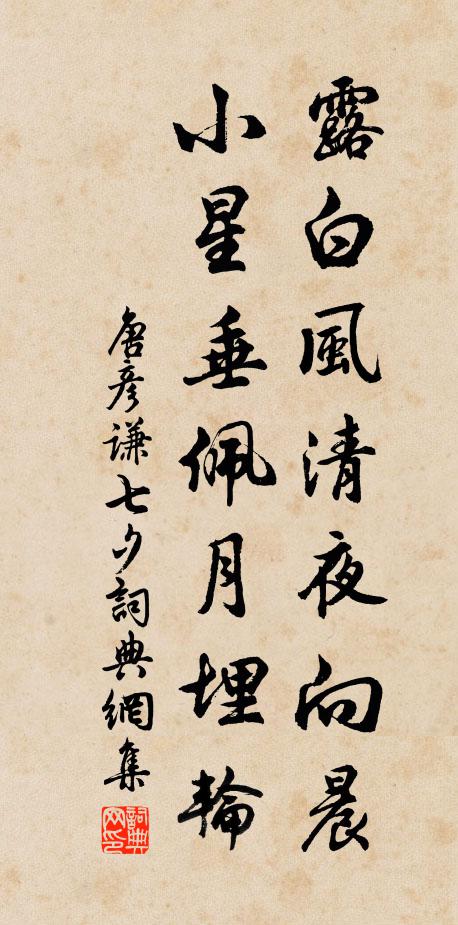 露白風清夜向晨
小星垂佩月埋輪
唐彥謙七夕詞典網集
詞典网印